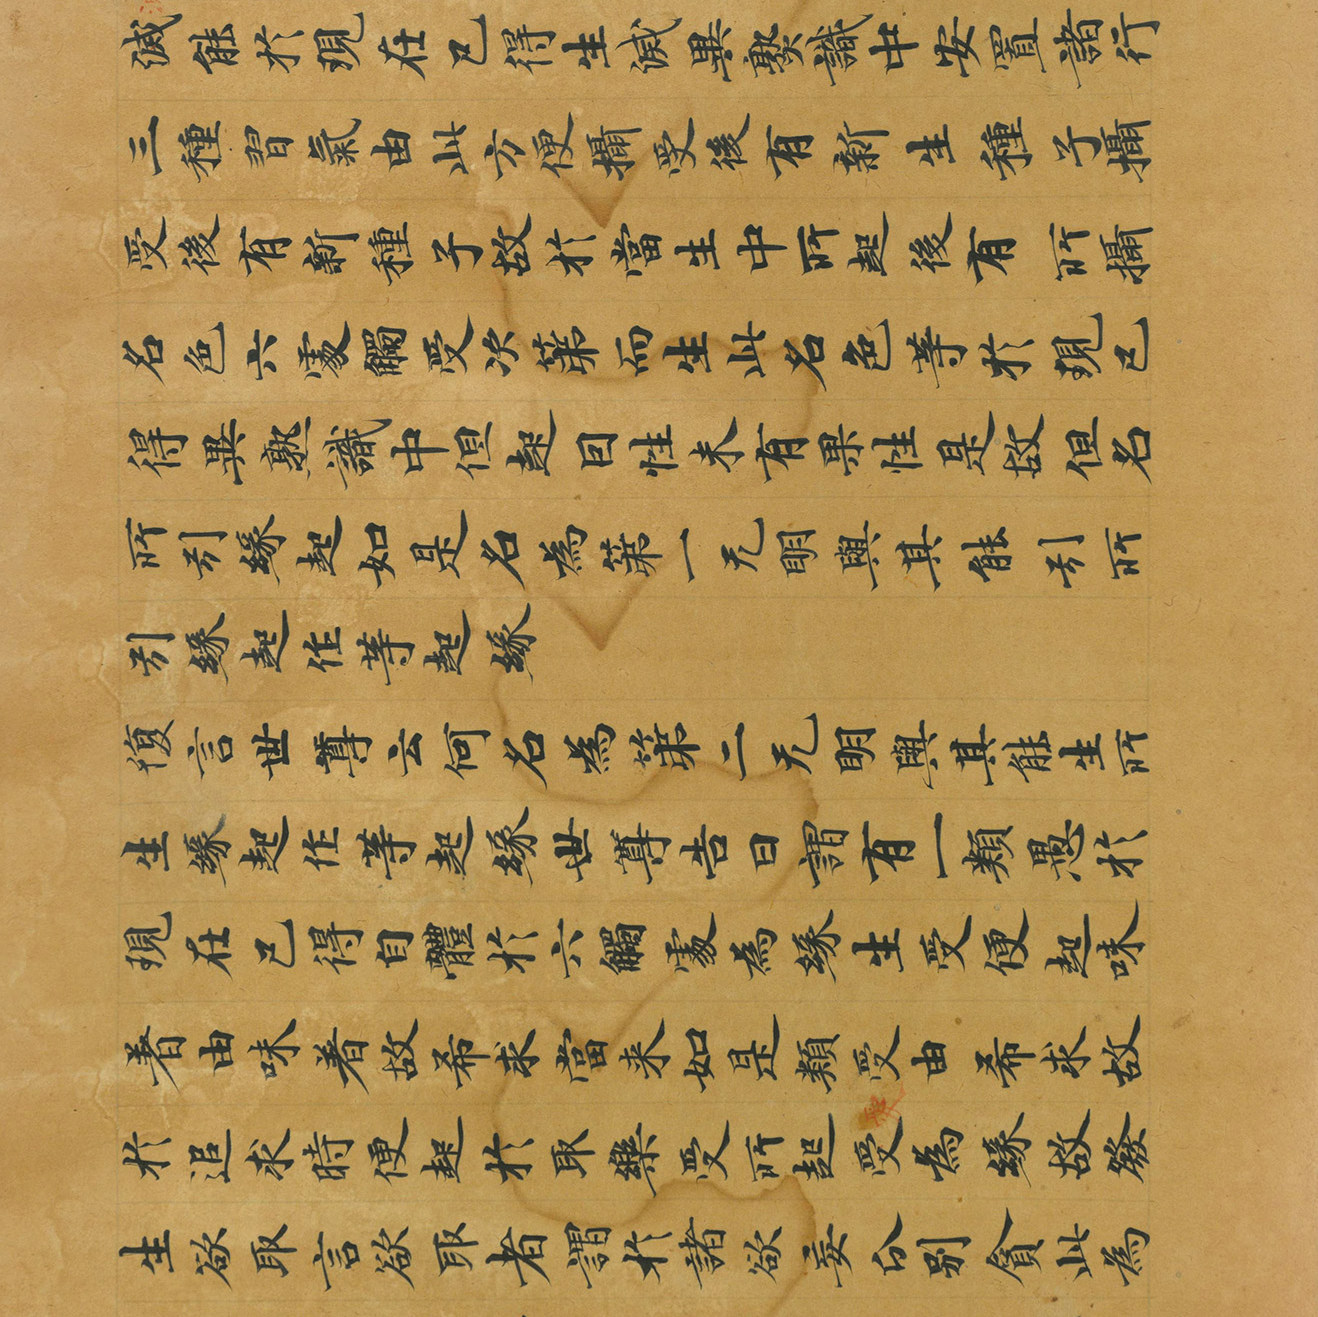 滅能於現在已得生滅異熟識中安置諸行
三種習氣由此方便攝受後有新生種子攝
受後有新種子故於當生中所起後有所攝
名色六處觸受次第而生此名色等於現已
得異熟識中但起因性未有果性是故但名
所引緣起如是名為第一无明與其能引所
引緣起作等起緣
復言世尊云何名為第二无明與其能生所
生緣起作等起緣世尊告曰謂有一類愚於
現在已得自體於六觸處為緣生受便起味
著由味著故希求當来如是類受由希求故
於追求時便起於取樂受所起受為緣故發
生欲取言欲取者謂於諸欲妄分別貪此為